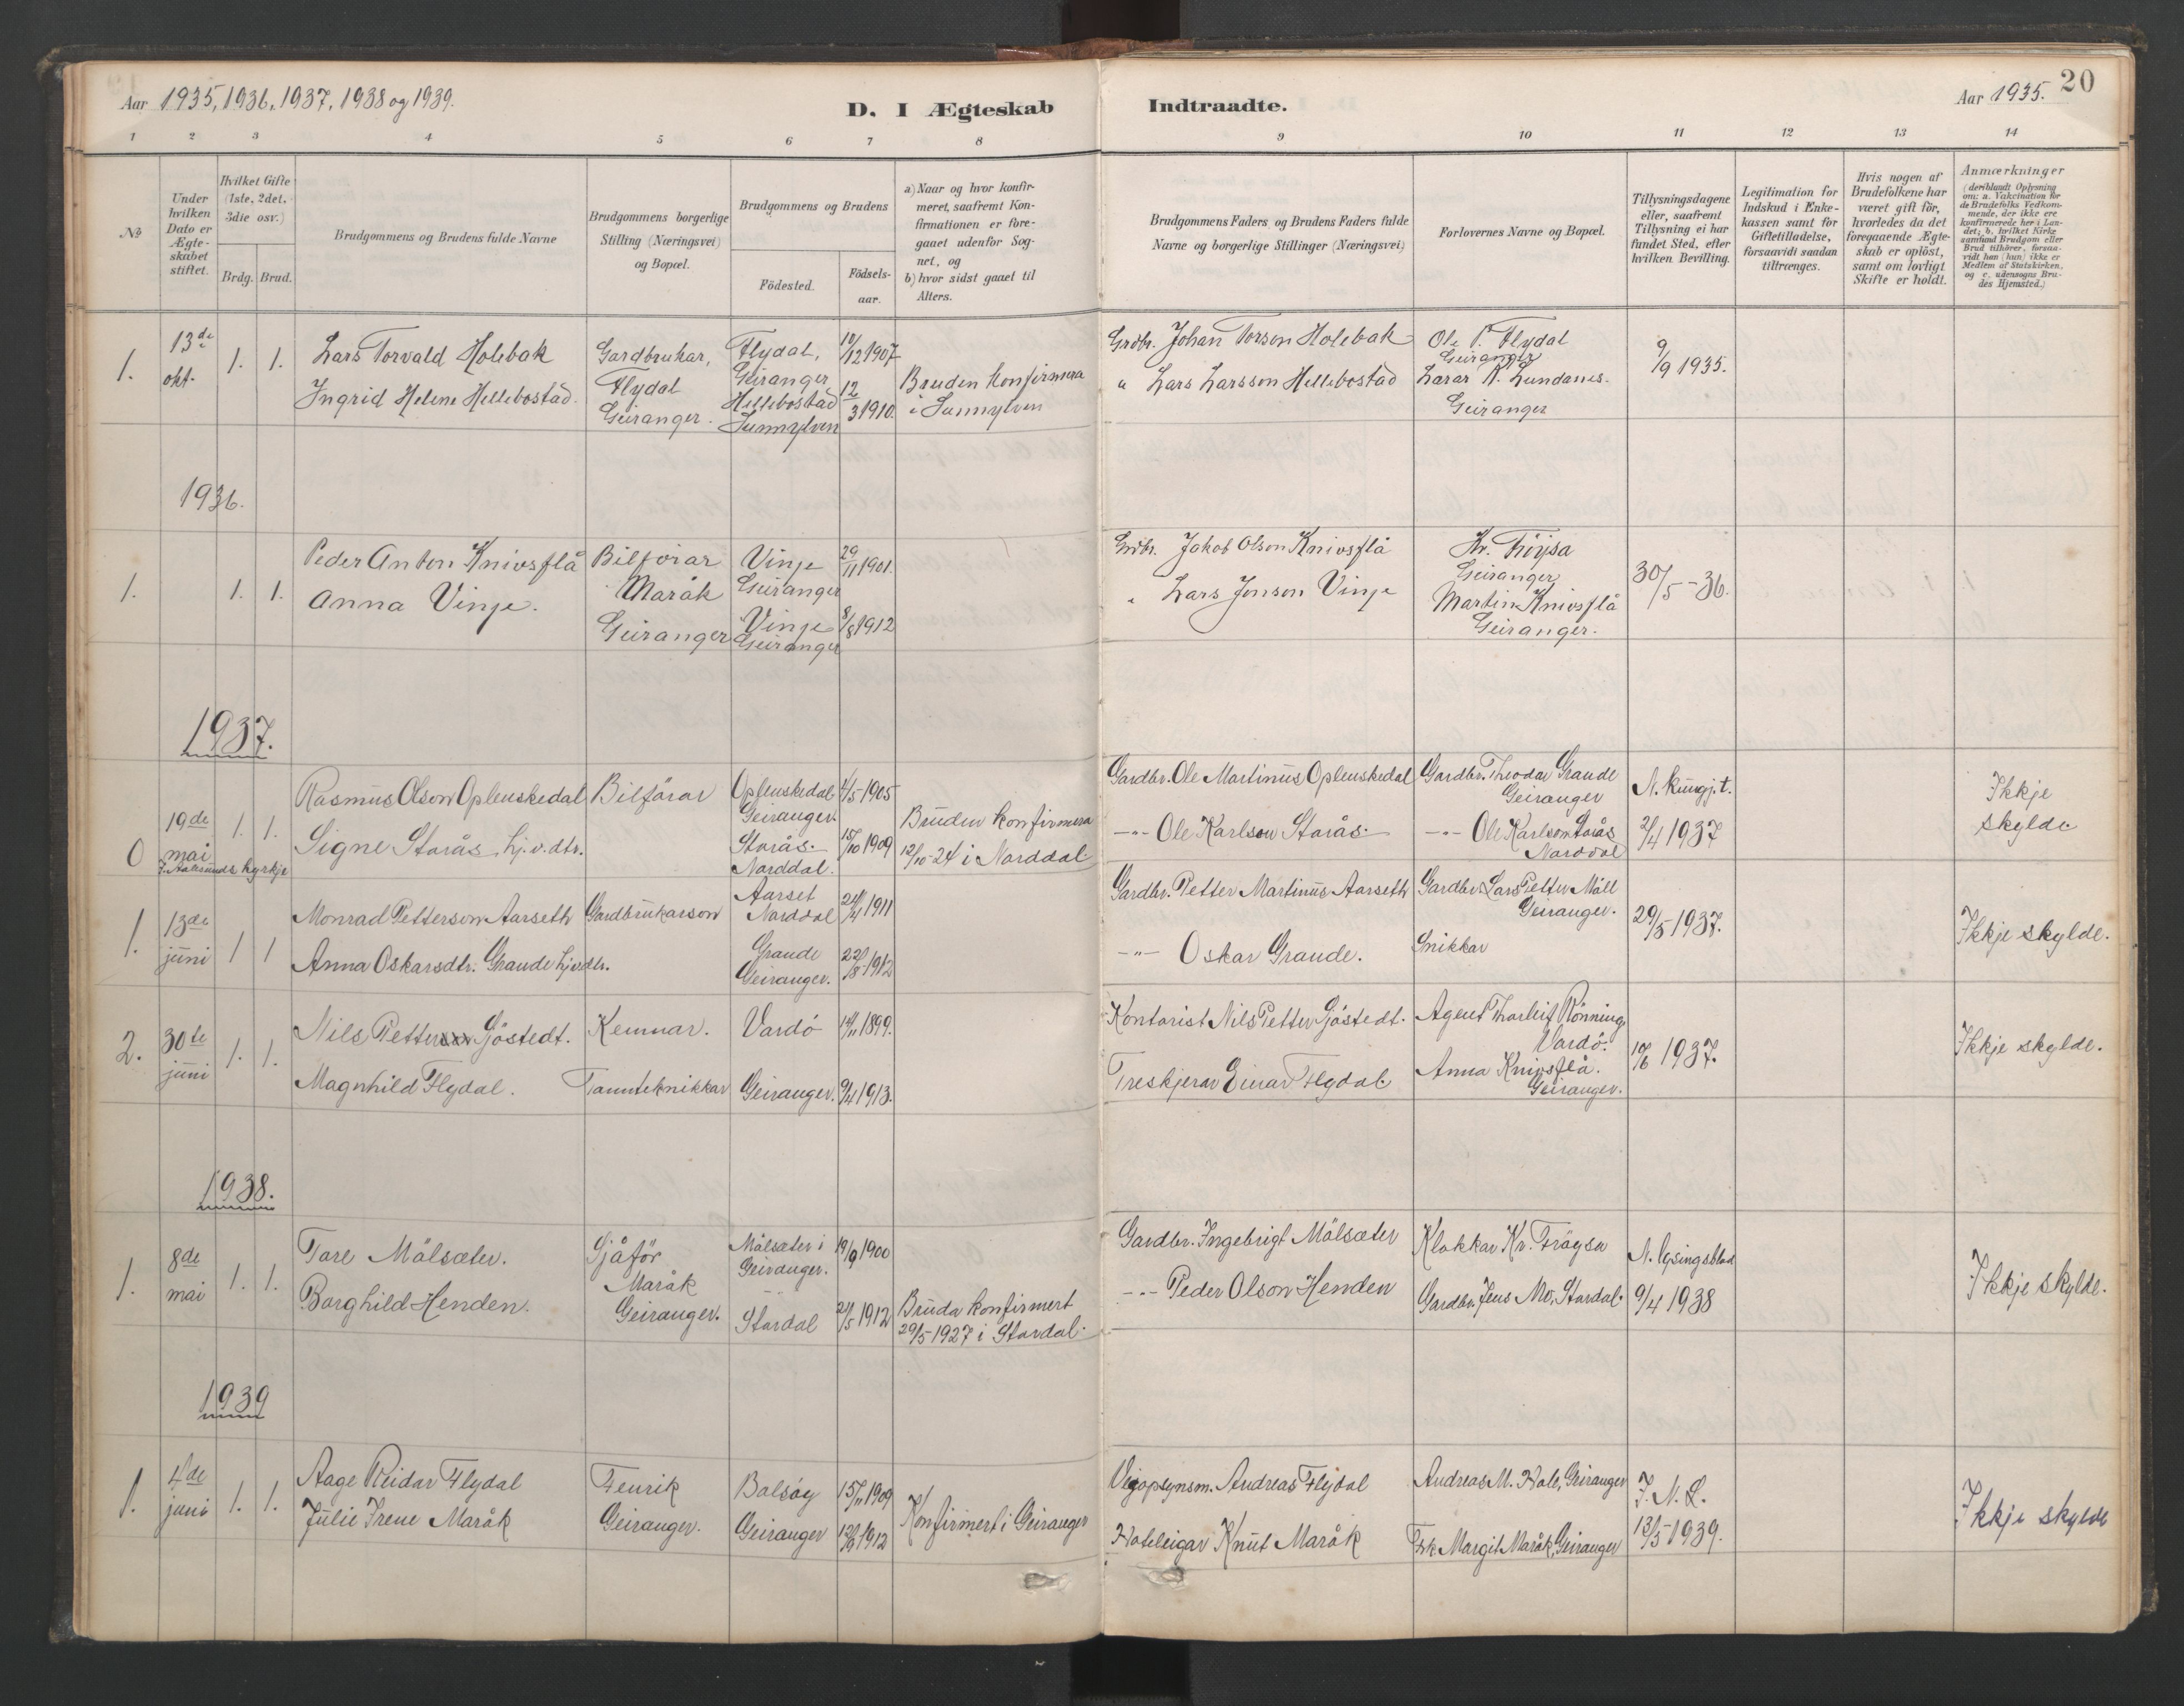 Aar 1935, 1936, 1937, 1938 og 1939.
D. I Ægteskab
Indtraadte.
Aar 1935.
20
1 2 3 4 5 6 7 8 9 10 11 12 13 14
No
Under hvilken Dato er Ægte-skabet stiftet.
Hvilket Gifte (1ste, 2det, 3die osv.)
Brdg. Brud.
Brudgommens og Brudens fulde Navne
Brudgommens borgerlige Stilling (Næringsvei) og Bopæl.
Brudgommens og Brudens
Födested.
Födsels-aar.
a) Naar og hvor konfir-meret, saafremt Kon-firmationen er fore-gaaet udenfor Sog-net, og
b) hvor sidst gaaet til Alters.
Brudgommens Faders og Brudens Faders fulde Navne og borgerlige Stillinger (Næringsvei)
Forlovernes Navne og Bopæl.
Tillysningsdagene eller, saafremt Tillysning ei har fundet Sted, efter hvilken Bevilling.
Legitimation for Indskud i Enke-kassen samt for Giftetilladelse, forsaavidt saadan tiltrænges.
Hvis nogen af Brudefolkene har været gift för, hvorledes da det foregaaende Ægte-skab er oplöst, samt om lovligt Skifte er holdt.
Anmærkninger
(deriblandt Oplysning om: a. Vakcination for de Brudefolks Vedkom-mende, der ikke ere konfirmerede her i Lan-det; b. hvilket Kirke samfund Brudgom eller Brud tilhörer, forsaa-vidt han (hun) ikke er Medlem af Statskirken, og c. udensogns Bru-des Hjemsted.)
1. 13de okt. 1. 1.
Lars Torvald Holebak
Ingrid Helene Hellebostad.
Gardbrukar,
Flydal
Geiranger.
Flydal,
Geiranger
Hellebostad
Sunnylven
10/12 1907
12/3 1910.
Bruden konfirmera
i Sunnylven
Grdbr. Johan Torson Holebak
" Lars Larsson Hellebostad
Ole P. Flydal
Geiranger
Larar K. Lundanes.
Geiranger
9/9 1935.
1936.
1. 1. 1.
Peder Anton Knivsflå
Anna Vinje.
Bilförar
Maråk
Geiranger
Vinje
Geiranger
Vinje
Geiranger
29/11 1901.
8/8 1912
Grdbr. Jakob Olson Knivsflå
" Lars Jonson Vinje
Kr. Fröysa
Geiranger
Martin Knivsflå
Geiranger.
30/5-36.
1937.
0 19de mai 1. 1.
I Aalesunds kyrkje
Rasmus Olson Oplenskedal
Signe Storås hj.v.dtr.
Bilförar
Oplenskedal
Geiranger.
Storås.
Norddal.
4/5 1905
15/10 1909
Bruden konfirmera
12/10-24 i Norddal
Gardbr. Ole Martinus Oplenskedal
-"- Ole Karlson Storås.
Gardbr. Theodor Grande
Geiranger
-"- Ole Karlson Storås
Norddal
N. kungj.t.
2/4 1937
Ikkje
skylde
1. 13de juni 1 1
Monrad Petterson Aarseth
Anna Oskarsdtr. Grande hj.v.dtr.
Gardbrukarson
Aarset
Norddal
Grande
Geiranger.
24/4 1911
22/8 1912
Gardbr. Petter Martinus Aarseth
-"- Oskar Grande.
Gardbr. Lars Petter Möll
Geiranger.
Snikkar
29/5 1937.
Ikkje skylde.
2. 30te juni 1. 1.
Nils Petter Sjöstedt.
Magnhild Flydal.
Kemnar.
Tannteknikkar
Vardö
Geiranger.
14/11 1899.
9/4 1913.
Kontorist Nils Petter Sjöstedt.
Treskjerar Einar Flydal.
Agent Thorleif Rönning,
Vardö.
Anna Knivsflå.
Geiranger.
10/6 1937.
Ikkje skylde.
1938.
1. 8de mai 1. 1.
Tore Mölsæter.
Borghild Henden.
Sjåför
Maråk
Geiranger.
Mölsæter i
Geiranger.
Stordal
19/9 1900
21/5 1912
Bruda konfirmert
29/5 1927 i Stordal.
Gardbr. Ingebrigt Mölsæter
-"- Peder Olson Henden
Klokkar Kr. Fröysa
Gardbr. Jens Mo, Stordal.
N. lysingsblad
9/4 1938
Ikkje skylde.
1939
1. 4de juni 1. 1.
Aage Reidar Flydal
Julie Irene Maråk
Fenrik
Geiranger.
Bolsöy
Geiranger
15/11 1909
Konfirmert i Geiranger
Vegopsynsm. Andreas Flydal
Hoteleigar Knut Maråk
Andreas M. Hole, Geiranger
Frk. Margit Maråk, Geiranger
I. N. L.
13/5 1939.
Ikkje skylde